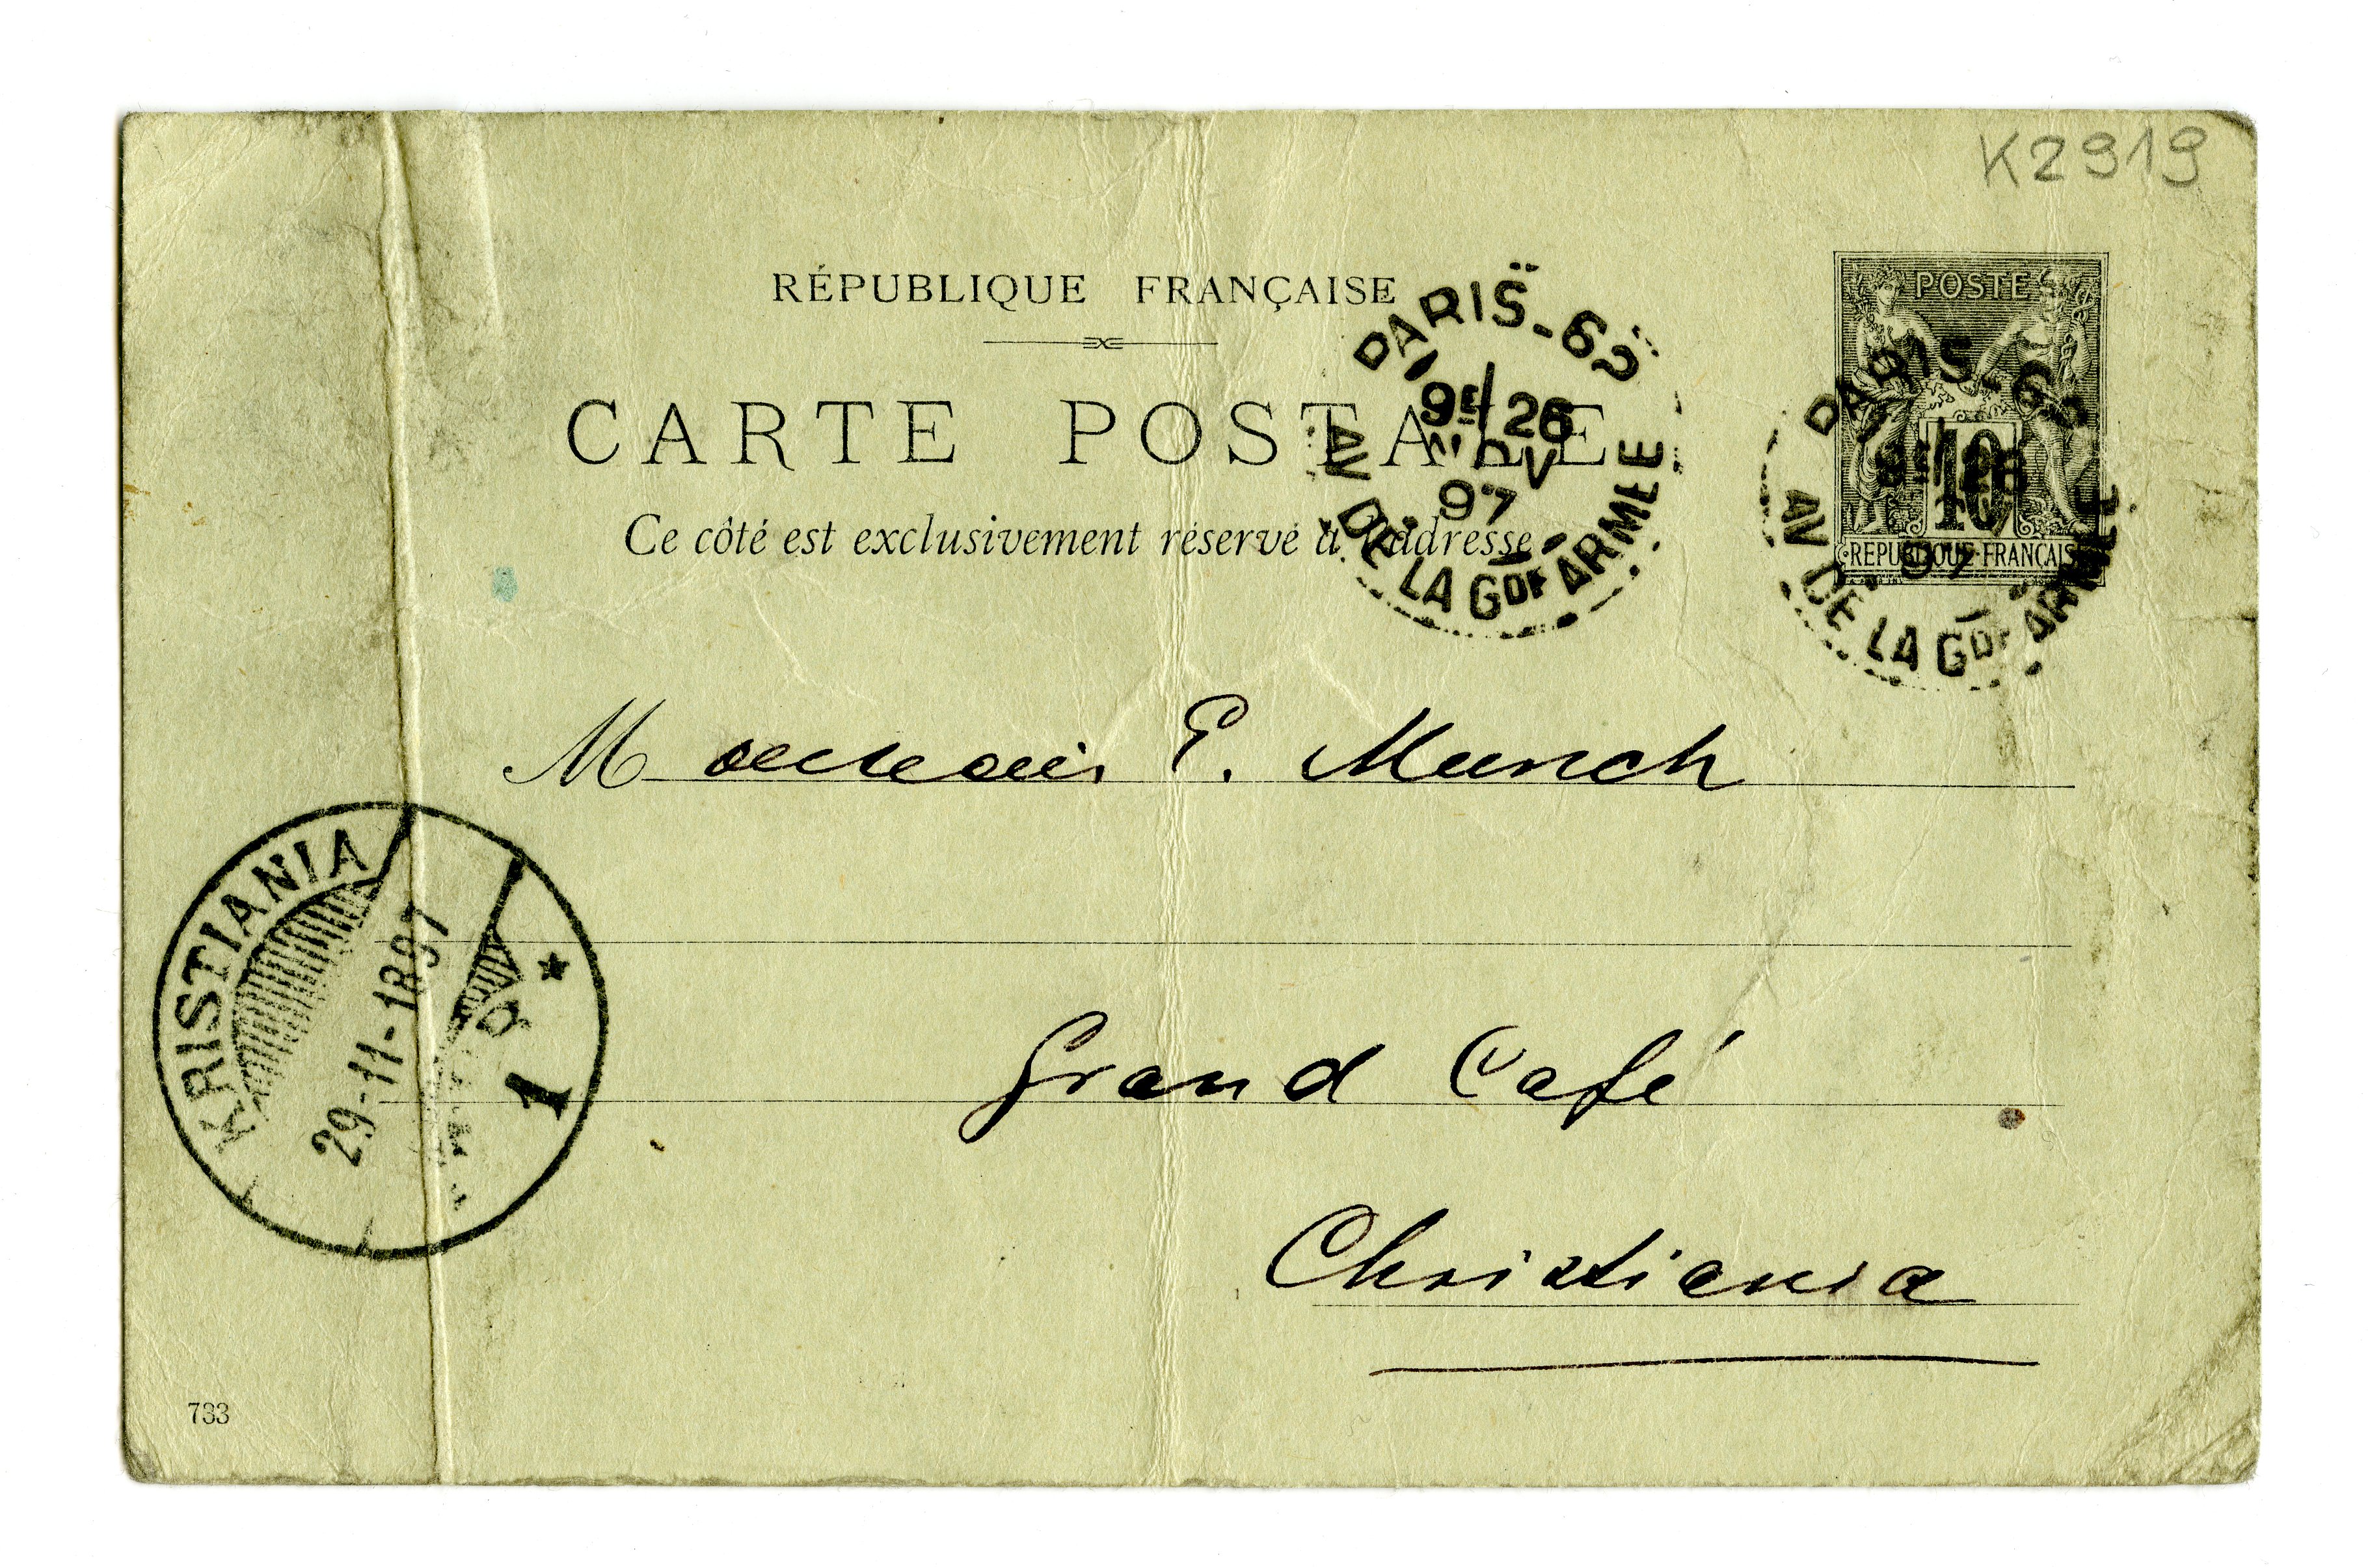 K2919
RÉPUBLIQUE FRANÇAISE
CARTE POSTALE
Ce côté est exclusivement réservé à l'adresse
PARIS-62
9E 26
NOV
97
AV DE LA GDE ARMÉE
POSTE
10
REPUBLIQUE FRANÇAISE
PARIS-62
26
97
AV DE LA GDE ARMÉE
Monsieur E. Munch
KRISTIANIA
29-11-1897
1
Grand Café
Christiania
733